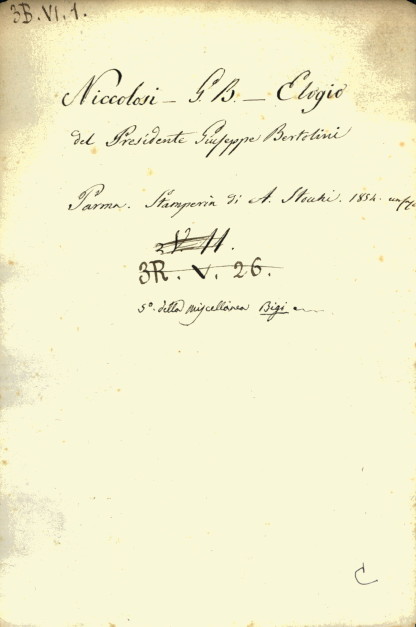 3B. VI. 1.
Niccolosi - G. B. - Elogio
del Presidente Giuseppe Bertolini
Parma. Stamperia di A. Stocchi. 1854.
V. 11.
3R. V. 26.
5° della miscellanea Bigi
C